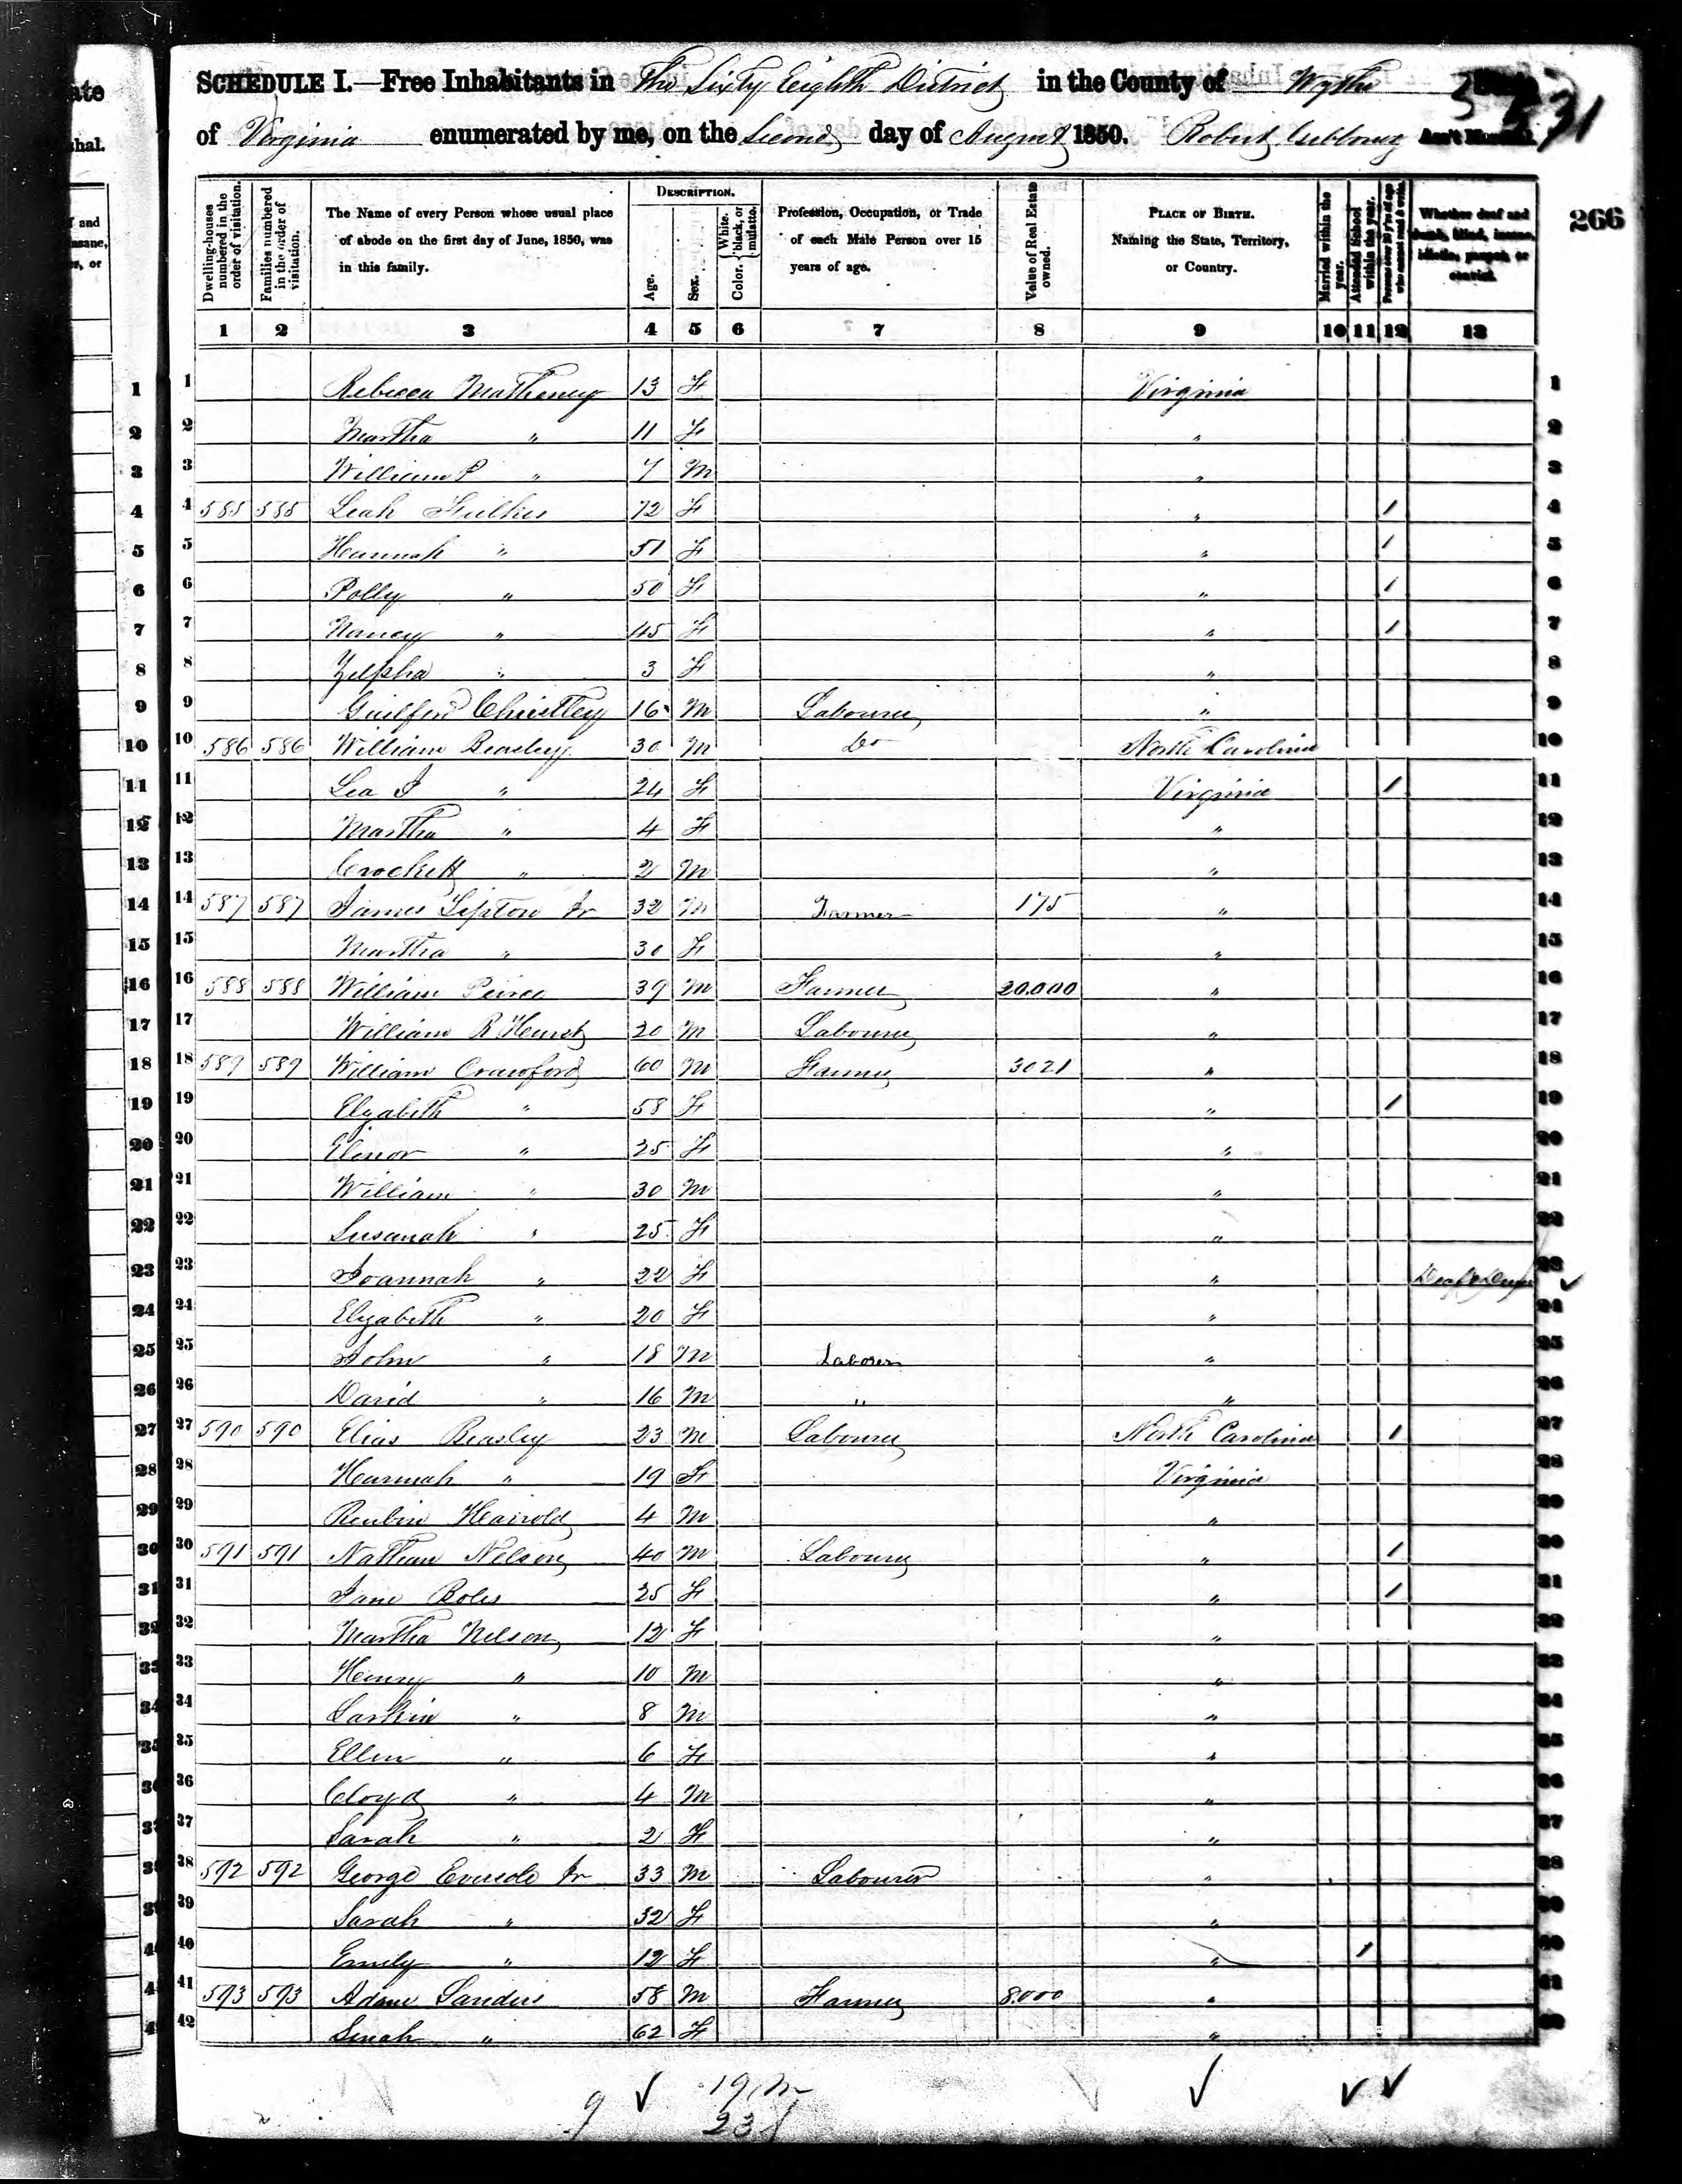 SCHEDULE I.—Free Inhabitants in The Sixty Eighth District in the County of Wythe
of Virginia enumerated by me, on the Second day of August 1850. Robert Ass't Marshal.
531
266
Dwelling-houses numbered in the order of visitation.
Families numbered in the order of visitation.
The Name of every Person whose usual place of abode on the first day of June, 1850, was in this family.
DESCRIPTION.
Age.
Sex.
Color. White, black, or mulatto.
Profession, Occupation, or Trade of each Male Person over 15 years of age.
Value of Real Estate owned.
PLACE OF BIRTH. Naming the State, Territory, or Country.
Married within the year.
Attended School within the year.
Persons over 20 y'rs of age who cannot read & write.
Whether deaf and dumb, blind, insane, idiotic, pauper, or convict.
1 2 3 4 5 6 7 8 9 10 11 12 13
1 Rebecca Matheney 13 F Virginia 1
2 Martha " 11 F " 2
3 William P " 7 M " 3
4 585 585 Leah 72 F " / 4
5 Hannah " 51 F " / 5
6 Polly " 50 F " / 6
7 Nancy " 45 F " / 7
8 Zelpha " 3 F " 8
9 Guilford Christley 16 M Labourer " 9
10 586 586 William Beasley 30 M Do North Carolina 10
11 Lea J " 24 F Virginia / 11
12 Martha " 4 F " 12
13 Crockett " 2 M " 13
14 587 587 James Lipton Jr 32 M Farmer 175 " 14
15 Martha " 30 F " 15
16 588 588 William Peirce 39 M Farmer 20.000 " 16
17 William R Hurst 20 M Labourer " 17
18 589 589 William Crawford 60 M Farmer 3021 " 18
19 Elyabeth " 58 F " / 19
20 Elenor " 25 F " 20
21 William " 30 M " 21
22 Susanah " 25 F " 22
23 Joannah " 22 F " Deaf & Dum 23
24 Elizabeth " 20 F " 24
25 John " 18 M Laborer " 25
26 David " 16 M " " 26
27 590 590 Elias Beasley 23 M Labourer North Carolina / 27
28 Hannah " 19 F Virginia 28
29 Reubin Hairold 4 M " 29
30 591 591 Nathan Nelson 40 M Labourer " / 30
31 Jane Boles 25 F " / 31
32 Martha Nelson 12 F " 32
33 Henry " 10 M " 33
34 Larkin " 8 M " 34
35 Ellen " 6 F " 35
36 Cloyd " 4 M " 36
37 Sarah " 2 F " 37
38 592 592 George Eversole Jr 33 M Labourer " 38
39 Sarah " 32 F " 39
40 Emily " 12 F " / 40
41 593 593 Adam Sanders 58 M Farmer 8.000 " 41
42 Senah " 62 F " 42
9 19 m
23 f